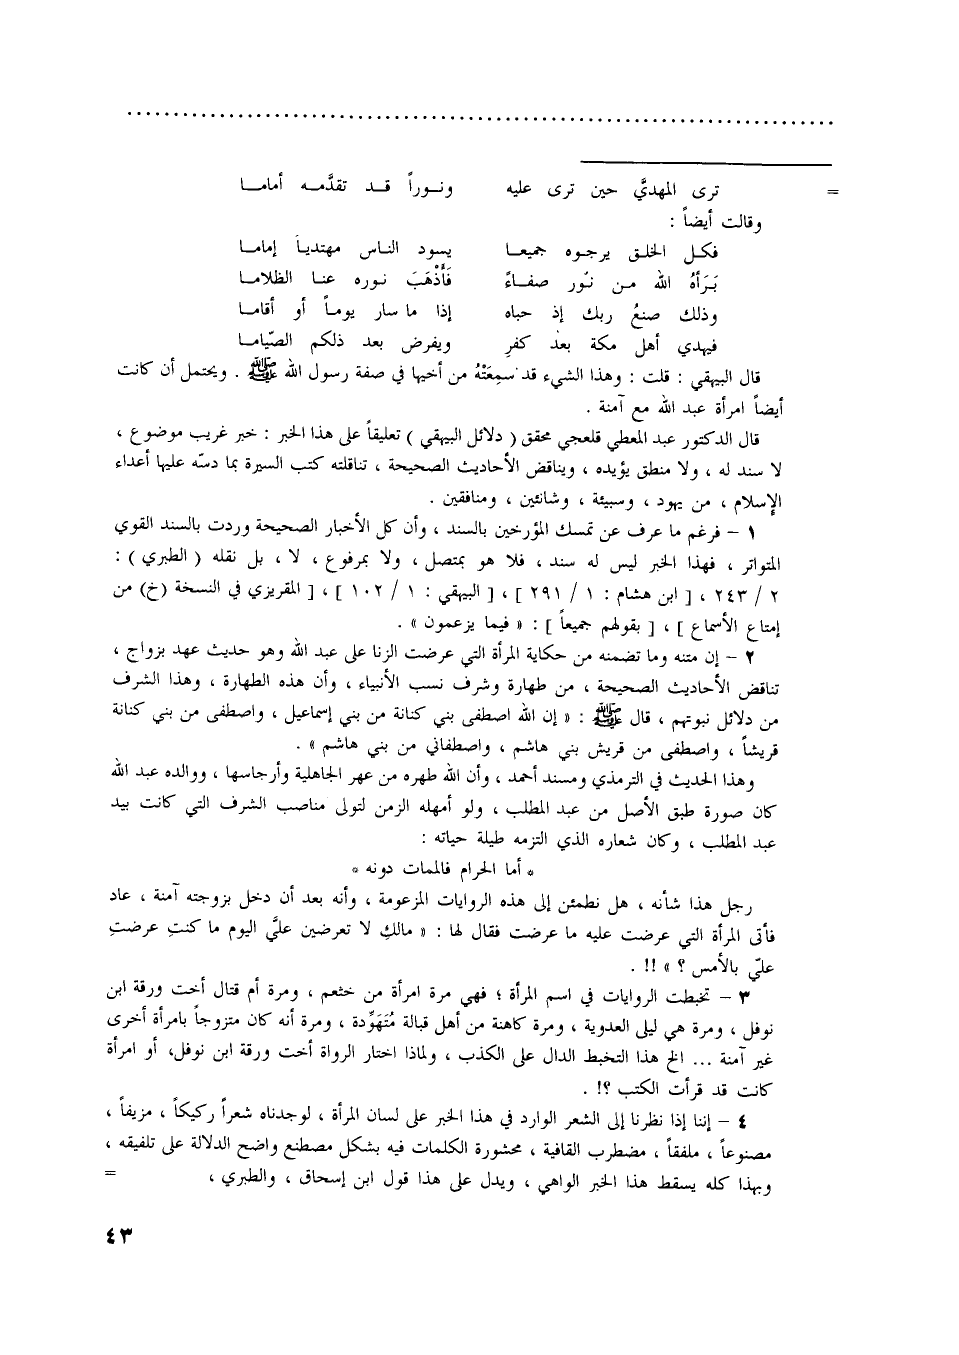 = ترى المهديَّ حين ترى عليه ونــوراً قــد تقدَّمــه أمامــا
وقالت أيضاً :
فكــل الخلــق يرجــوه جميعــا يسود النــاس مهتديــاً إمامــا
بَـرَأهُ الله مــن نُور صفــاءً فَأَذْهَبَ نــوره عنــا الظلامــا
وذلك صنعُ ربك إذ حباه إذا ما سار يومــاً أو أقامــا
فيهدي أهل مكة بعد كفرِ ويفرض بعد ذلكم الصّيامــا
قال البيهقي : قلت : وهذا الشيء قد سمِعَتْهُ من أخيها في صفة رسول الله ﷺ . ويحتمل أن كانت
أيضاً امرأة عبد الله مع آمنة .
قال الدكتور عبد المعطي قلعجي محقق ( دلائل البيهقي ) تعليقاً على هذا الخبر : خبر غريب موضوع ،
لا سند له ، ولا منطق يؤيده ، ويناقض الأحاديث الصحيحة ، تناقلته كتب السيرة بما دسّه عليها أعداء
الإسلام ، من يهود ، وسبيئة ، وشانئين ، ومنافقين .
١ – فرغم ما عرف عن تمسك المؤرخين بالسند ، وأن كل الأخبار الصحيحة وردت بالسند القوي
المتواتر ، فهذا الخبر ليس له سند ، فلا هو بمتصل ، ولا بمرفوع ، لا ، بل نقله ( الطبري ) :
٢ / ٢٤٣ ، [ ابن هشام : ١ / ٢٩١ ] ، [ البيهقي : ١ / ١٠٢ ] ، [ المقريزي في النسخة (خ) من
إمتاع الأسماع ] ، [ بقولهم جميعاً ] : « فيما يزعمون » .
٢ – إن متنه وما تضمنه من حكاية المرأة التي عرضت الزنا على عبد الله وهو حديث عهد بزواج ،
تناقض الأحاديث الصحيحة ، من طهارة وشرف نسب الأنبياء ، وأن هذه الطهارة ، وهذا الشرف
من دلائل نبوتهم ، قال ﷺ : « إن الله اصطفى بني كنانة من بني إسماعيل ، واصطفى من بني كنانة
قريشاً ، واصطفى من قريش بني هاشم ، واصطفاني من بني هاشم » .
وهذا الحديث في الترمذي ومسند أحمد ، وأن الله طهره من عهر الجاهلية وأرجاسها ، ووالده عبد الله
كان صورة طبق الأصل من عبد المطلب ، ولو أمهله الزمن لتولى مناصب الشرف التي كانت بيد
عبد المطلب ، وكان شعاره الذي التزمه طيلة حياته :
* أما الحرام فالممات دونه *
رجل هذا شأنه ، هل نطمئن إلى هذه الروايات المزعومة ، وأنه بعد أن دخل بزوجته آمنة ، عاد
فأتى المرأة التي عرضت عليه ما عرضت فقال لها : « مالكِ لا تعرضين عليَّ اليوم ما كنتِ عرضتِ
عليّ بالأمس ؟ » !! .
٣ – تخبطت الروايات في اسم المرأة ؛ فهي مرة امرأة من خثعم ، ومرة أم قتال أخت ورقة ابن
نوفل ، ومرة هي ليلى العدوية ، ومرة كاهنة من أهل قبالة مُتَهَوِّدة ، ومرة أنه كان متزوجاً بامرأة أخرى
غير آمنة ... الخ هذا التخبط الدال على الكذب ، ولماذا اختار الرواة أخت ورقة ابن نوفل، أو امرأة
كانت قد قرأت الكتب ؟! .
٤ – إننا إذا نظرنا إلى الشعر الوارد في هذا الخبر على لسان المرأة ، لوجدناه شعراً ركيكاً ، مزيفاً ،
مصنوعاً ، ملفقاً ، مضطرب القافية ، محشورة الكلمات فيه بشكل مصطنع واضح الدلالة على تلفيقه ،
وبهذا كله يسقط هذا الخبر الواهي ، ويدل على هذا قول ابن إسحاق ، والطبري ، =
٤٣